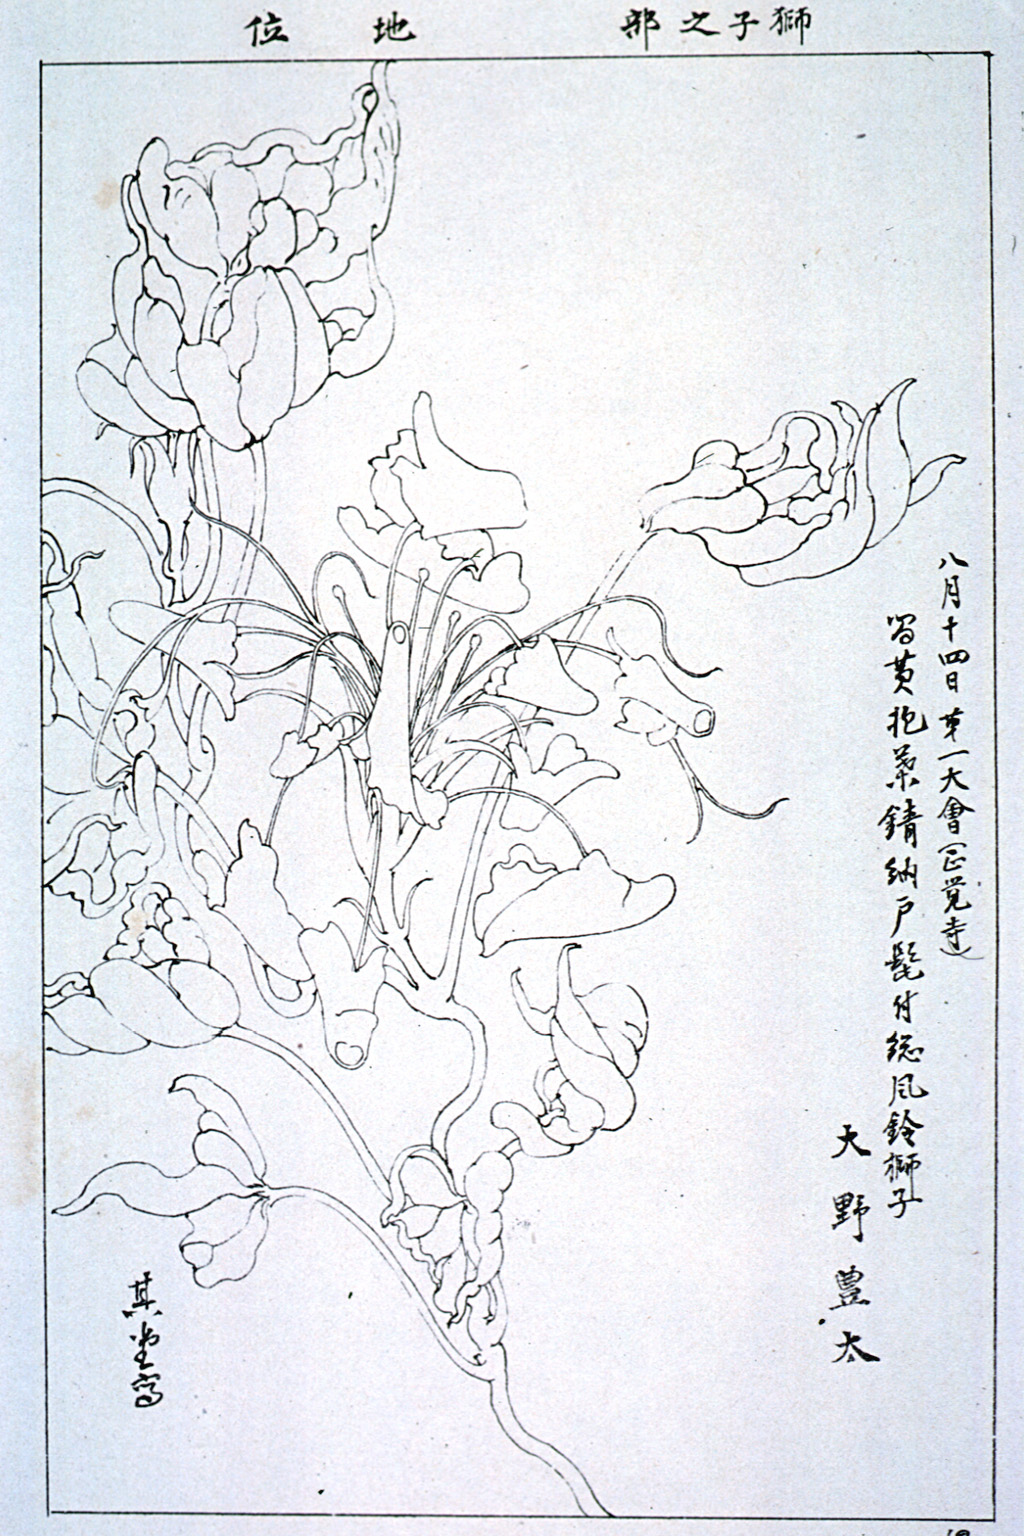 獅子之部 地位
八月十四日第一大會(正覚寺)
宿黄抱葉錆納戸髭付総風鈴獅子
大野豊太
其堂寫